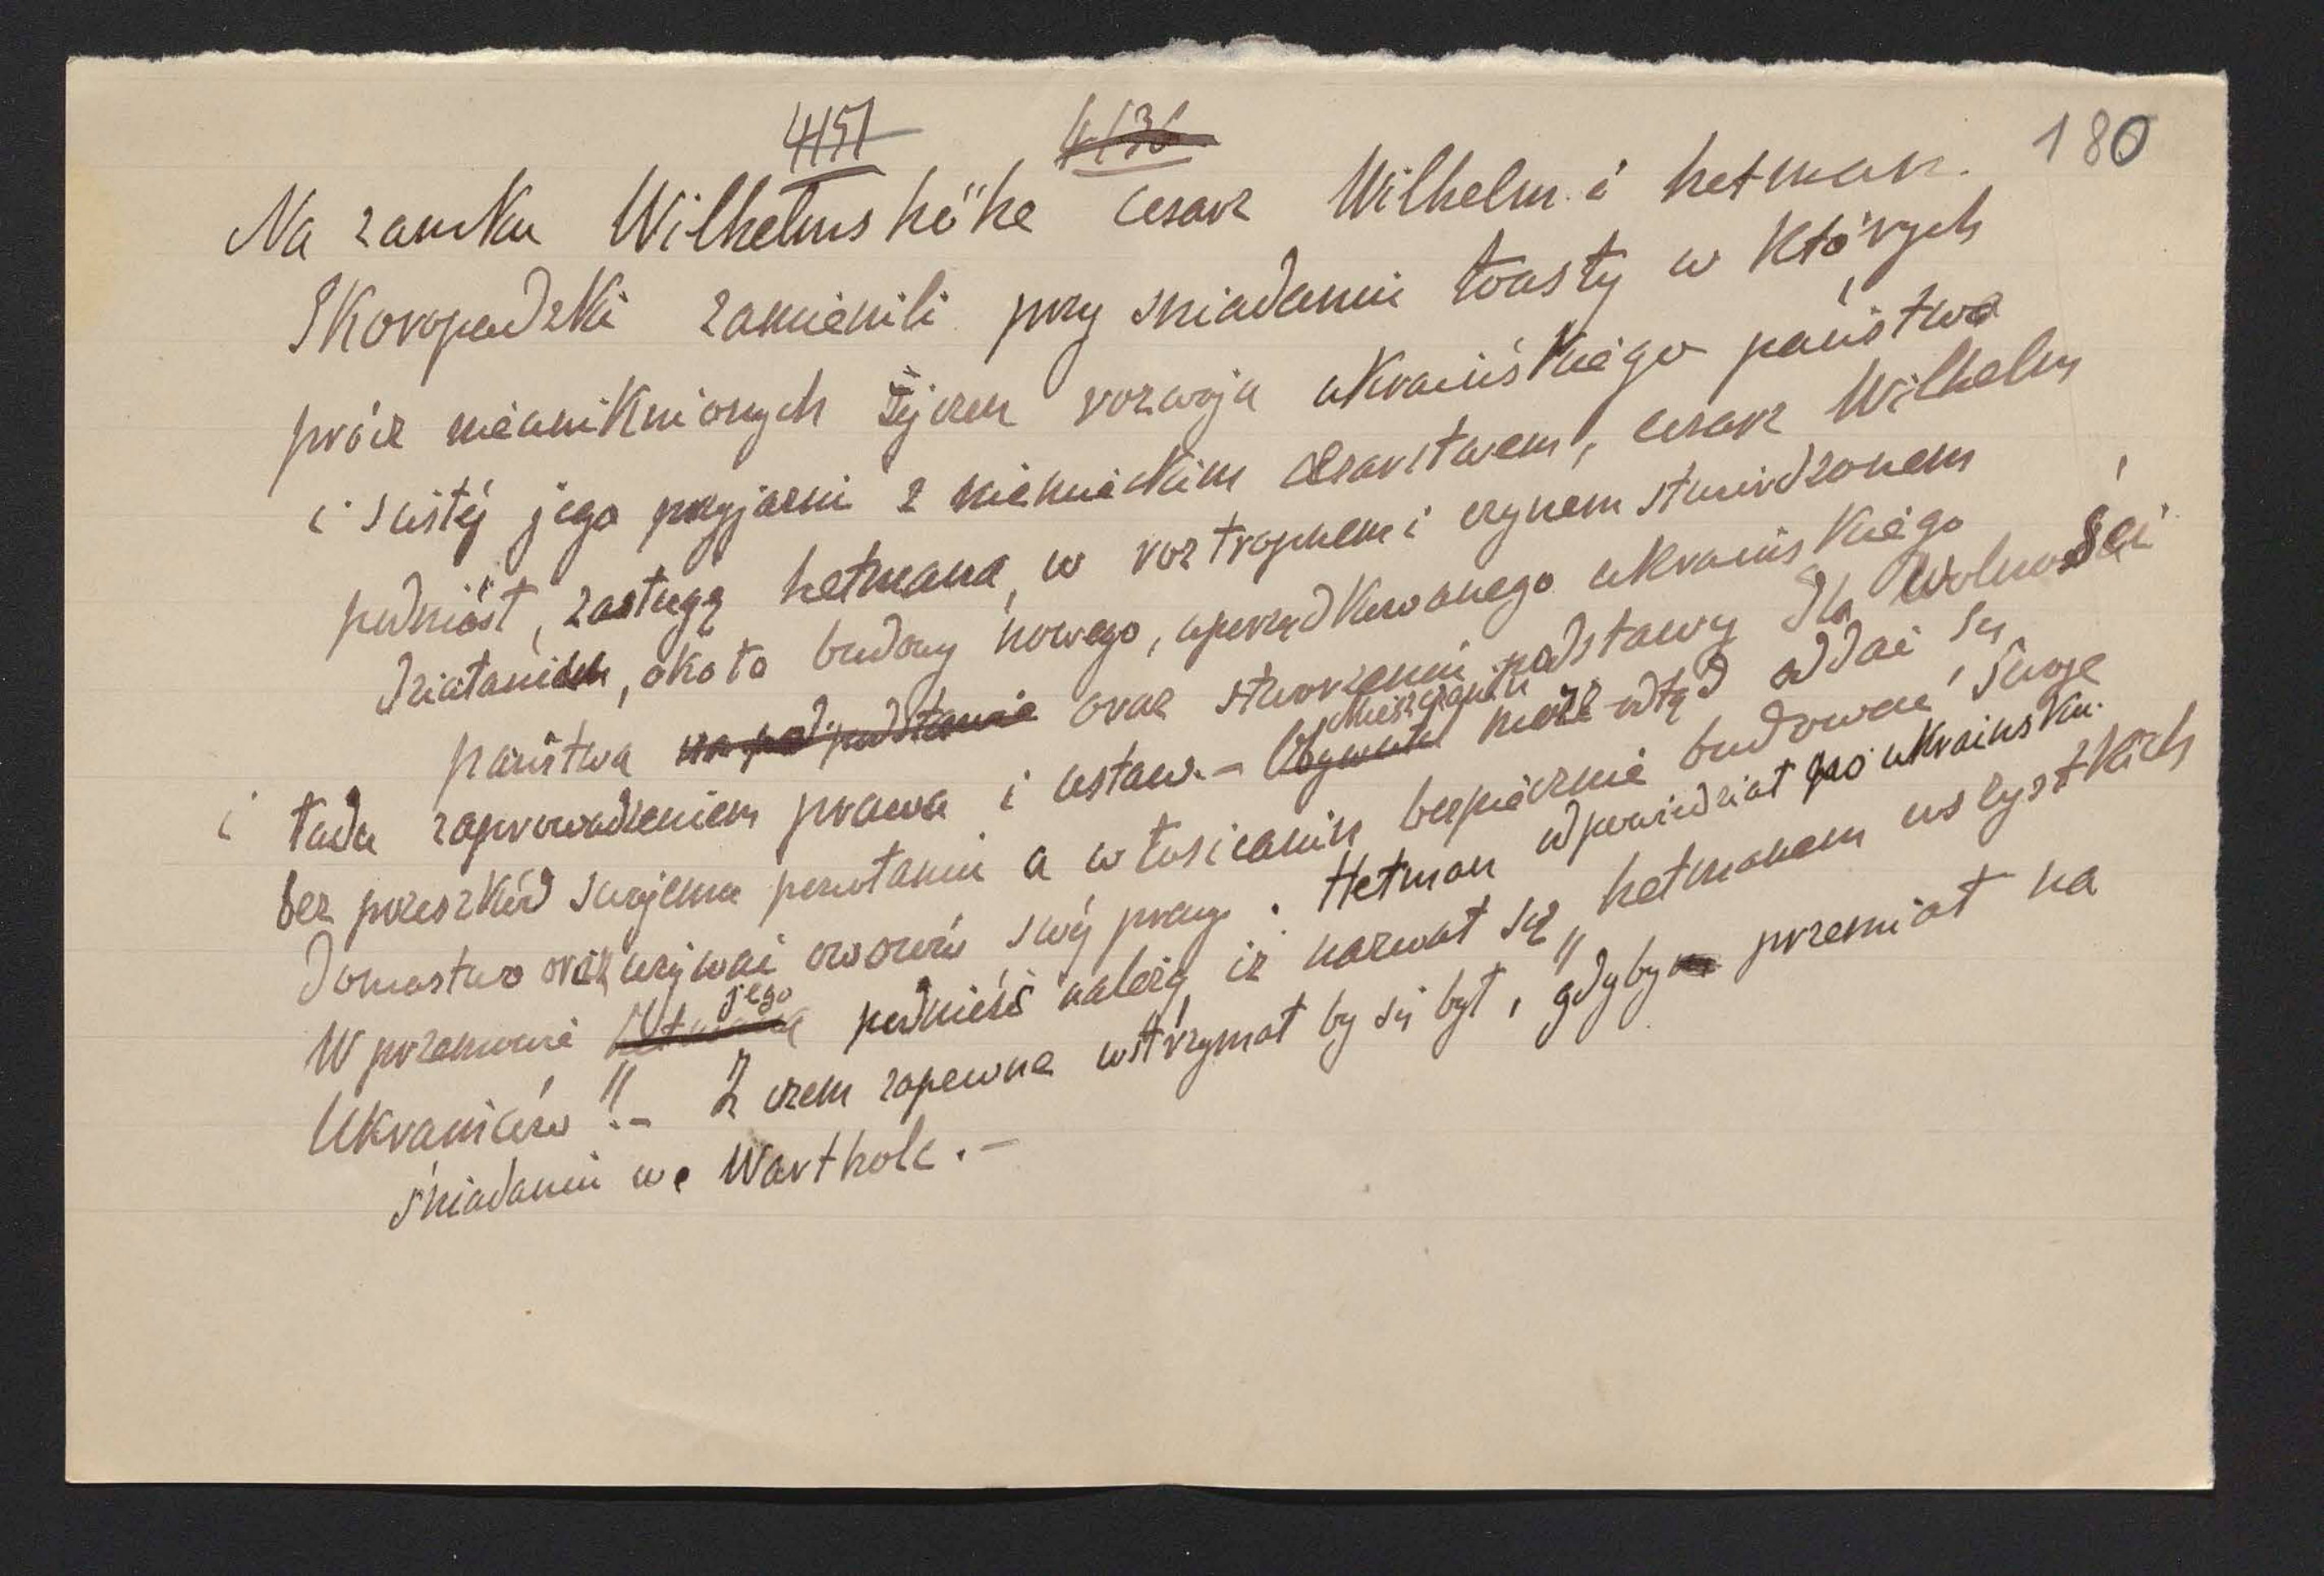 4151 4136 180
Na zamku Wilhelmshöhe cesarz Wilhelm i hetman
Skoropadzki zamienili przy sniadaniu toasty w których
prócz nieuniknionych życzeń rozwoju ukraińskiego państwa
i scisłéj jego przyjaźni z niemieckim cesarstwem, cesarz Wilhelm
podniósł, zasługę hetmana, w roztropnem i czynem stwierdzonem
działaniem, około budowy nowego, uporządkowanego ukraińskiego
państwa na pod podstawie oraz stworzeniu podstawy dla wolności
i ładu zaprowadzeniem prawa i ustaw. - Obywatel mieszczanin może odtąd oddać się
bez przeszkód swojemu powołaniu a włościanin bezpiecznie budować swoje
domostwo oraz używać owoców swéj pracy. Hetman odpowiedział po ukrainsku.
W przemowie hetmana jego podnieść należy iż nazwał się „hetmanem wszystkich
Ukrainców". - Z czem zapewne wstrzymał by się był, gdyby przemiał na
śniadaniu we Wartholc. -